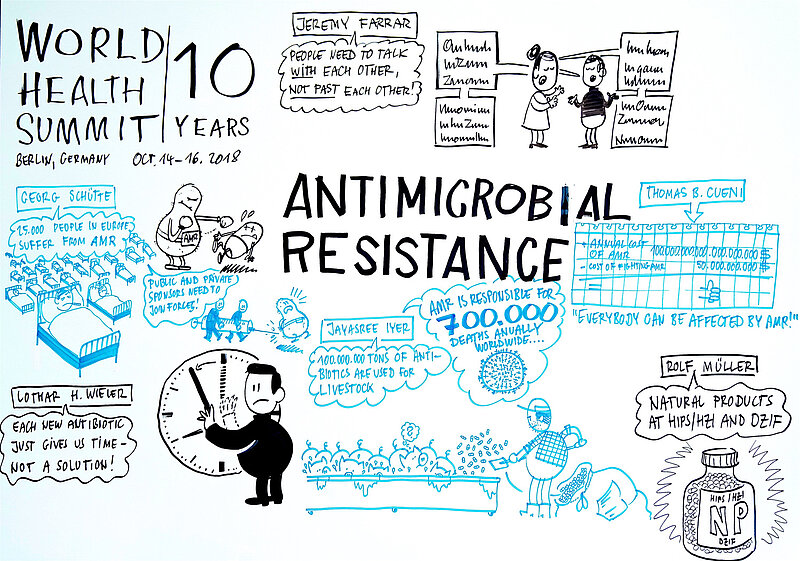 WORLD
HEALTH
SUMMIT
10
YEARS
BERLIN, GERMANY OCT. 14-16. 2018
JEREMY FARRAR
PEOPLE NEED TO TALK
WITH EACH OTHER,
NOT PAST EACH OTHER!
ANTIMICROBIAL
RESISTANCE
GEORG SCHÜTTE
25.000 PEOPLE IN EUROPE
SUFFER FROM AMR
AMR
PUBLIC AND PRIVATE
SPONSORS NEED TO
JOIN FORCES!
THOMAS B. CUENI
+ ANNUAL COST
OF AMR 100.000.000.000.000.000 $
- COST OF FIGHTING AMR 50.000.000.000 $
=
"EVERYBODY CAN BE AFFECTED BY AMR!"
JAYASREE IYER
AMR IS RESPONSIBLE FOR
700.000
DEATHS ANUALLY
WORLDWIDE....
100.000.000 TONS OF ANTI-
BIOTICS ARE USED FOR
LIVESTOCK
LOTHAR H. WIELER
EACH NEW ANTIBIOTIC
JUST GIVES US TIME -
NOT A SOLUTION!
ROLF MÜLLER
NATURAL PRODUCTS
AT HIPS/HZI AND DZIF
HIPS/HZI
NP
DZIF